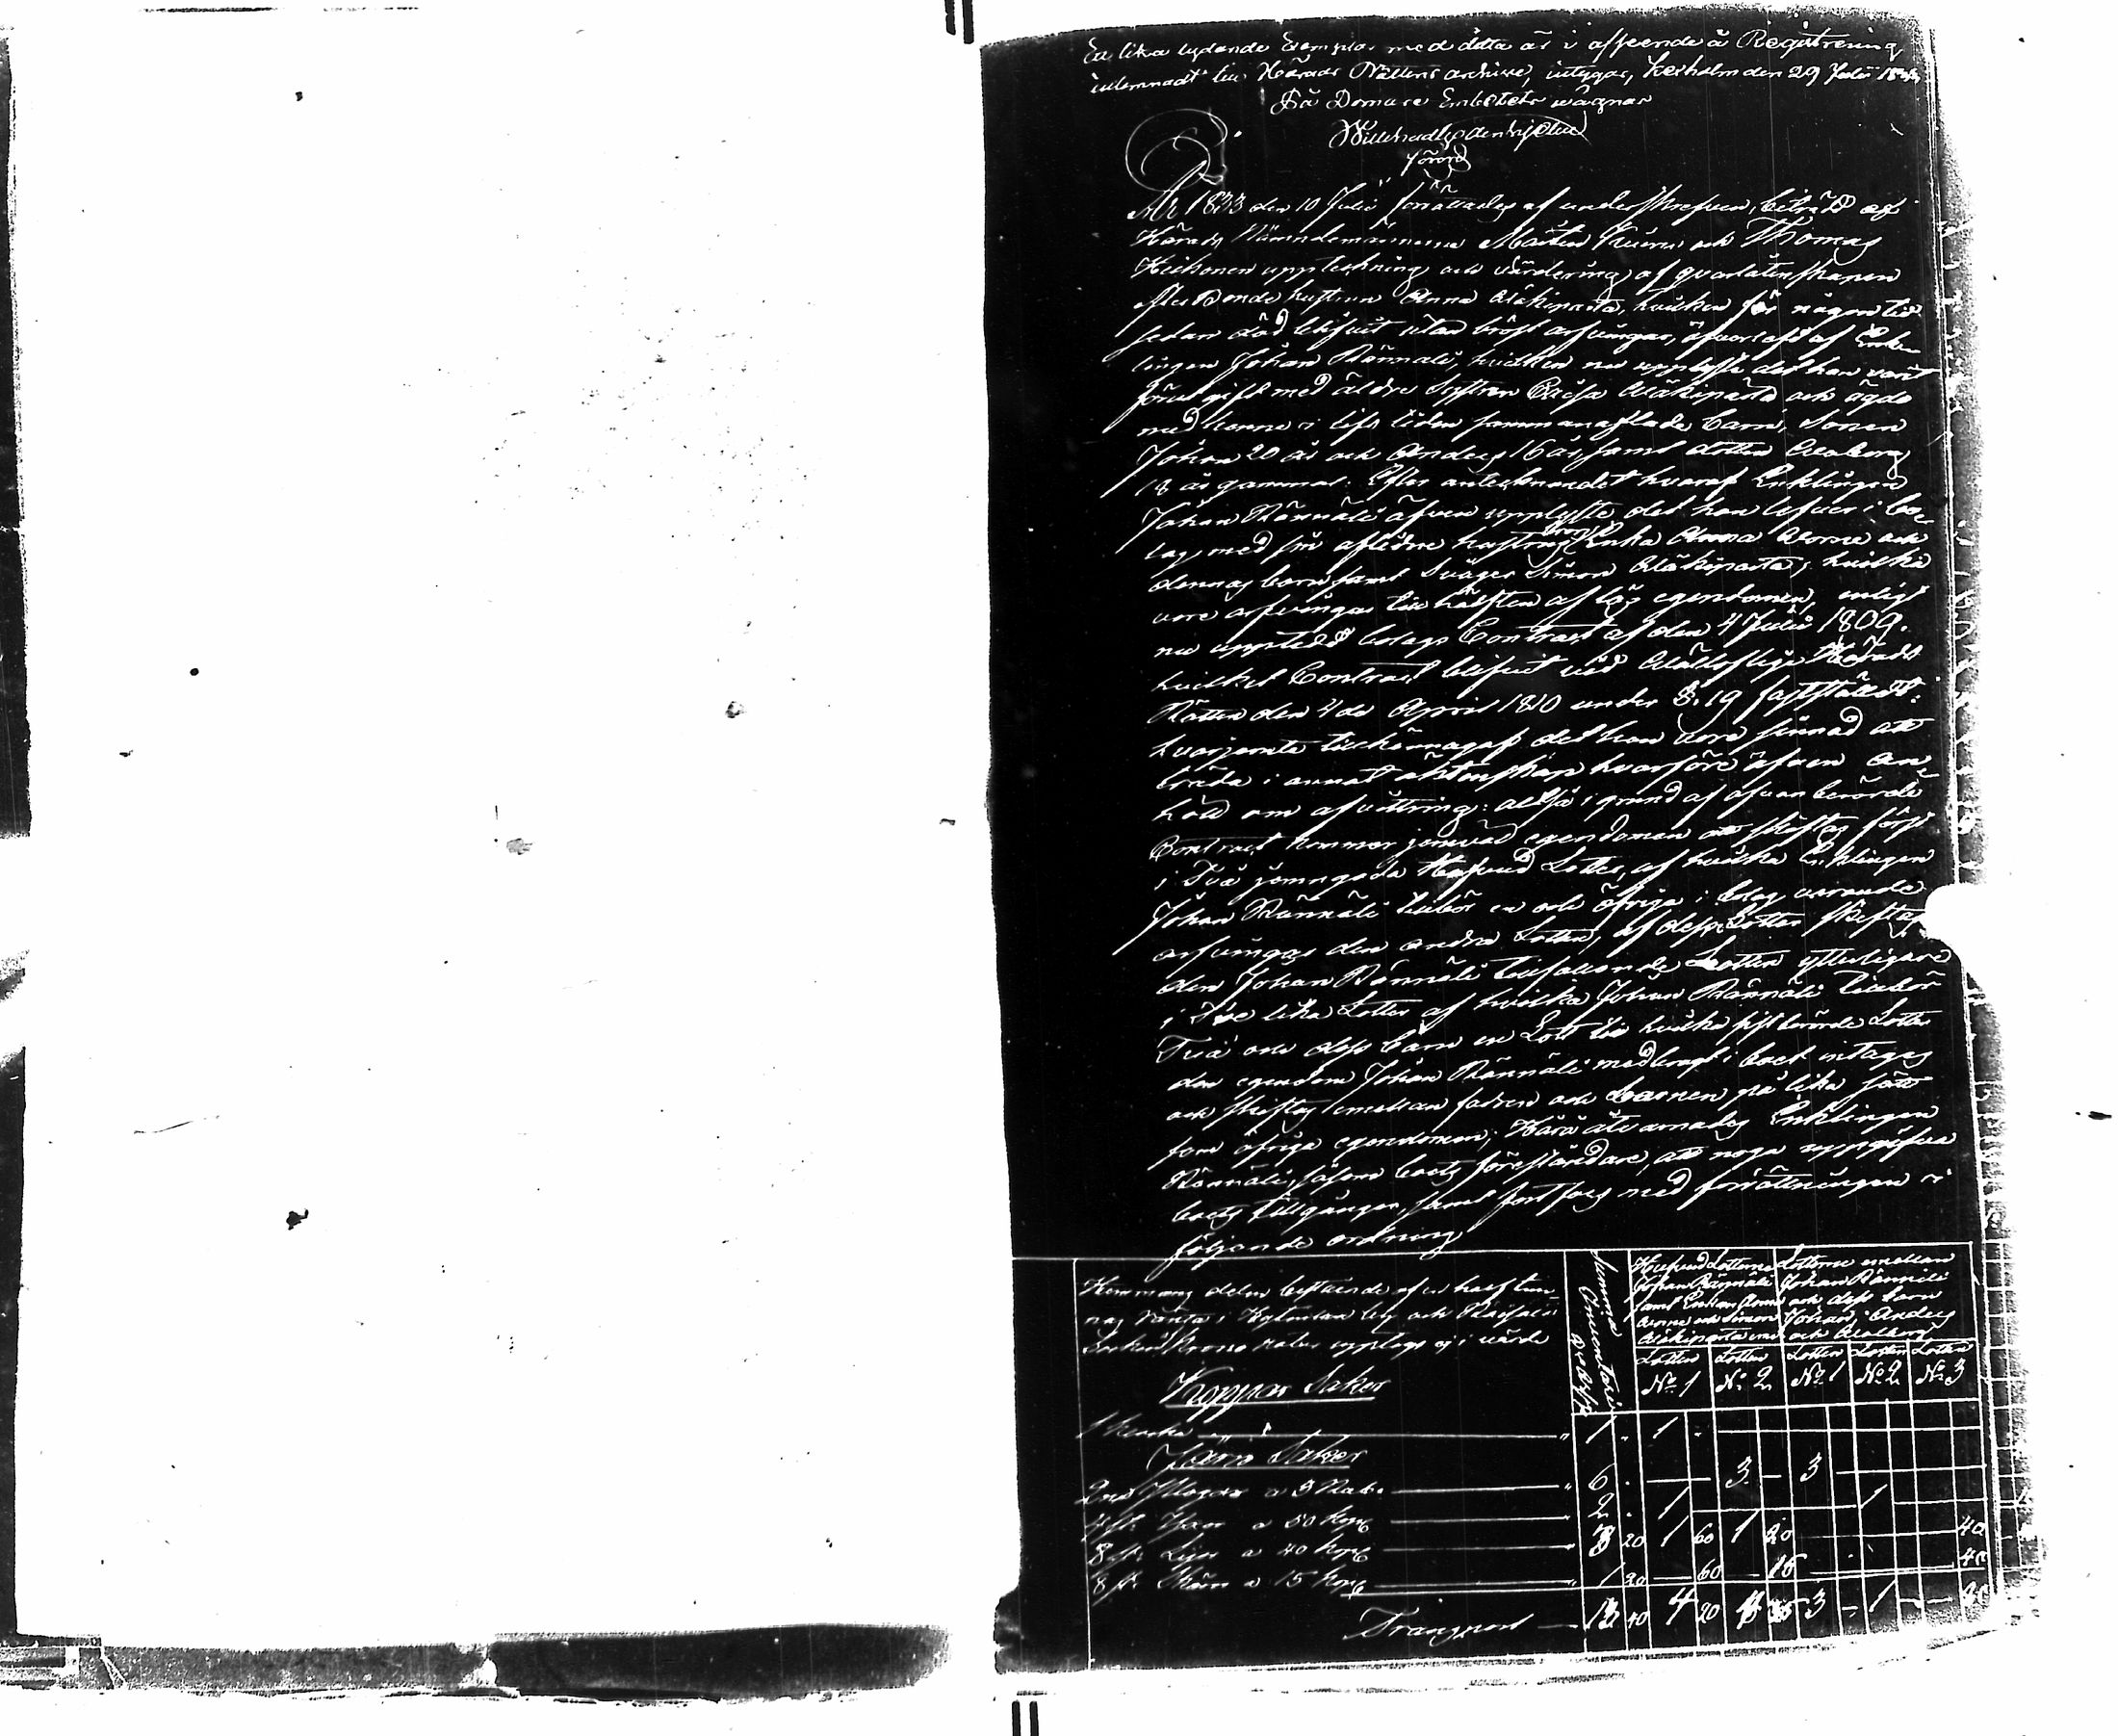 En lika lydande Exemplar med detta är i afseende å Registrering
inlemnadt till Härads Rättens archive, intygar, Kexholm den 29 Julii
På Domare Embetets wägnar
År 1833 den 10 Julii förrättades af underskrefven, biträdd af
Härads Nämndemännerne Mårten och Thomas
Heikonen uppteckning och värdering af qvarlåtenskapen
efter Bonde hustrun Anna Wäkiparta, hvilken för någon tid
sedan död blifvit utan bröst arfvingar, äfverlefd af Enk-
lingen Johan Rännäli, hvilken nu upplyste det han varit
förut gift med äldre Systren Wäkiparta och ägde
med henne i lifs tiden sammanaflade barn, Sonen
Johan 20 år och Anders 16 år, samt dotter Walborg
18 år gammal. Efter antecknandet hvaraf Enklingen
Johan Rännäli äfven upplyste det han lefver i bo-
lag med sin aflidne hustrus brors Enka Anna och
dennas barn samt Svåger Simon Wäkiparta, hvilka
vore arfvingar till hälften af lös egendomen, enligt
nu uppteedt bolags Contract af den 4 Julii 1809.
hvilket Contract blifvit vid Wällofliga Härads
Rätten den 4 de April 1810 under §. 19 fastställdt:
hvarjemte tillkännagaf det han vore sinnad att
träda i annat äktenskap hvarföre äfven an-
höll om afvittring: altså i grund af ofvanberörde
Contract kommer jemväl egendomen att skiftas först
i Två jemngoda Hufvud Lotter, af hvilka Enklingen
Johan Rännäli tillhör en och öfriga i bolag varande
arfvingar den andra Lotten, af dess Lotter skiftas
den Johan Rännäli tillfallande Lotten ytterligare
i Tre lika Lotter af hvilka Johan Rännäli tillhör
Två och dess barn en Lott till hvilka sist berörde Lotter
den egendom Johan Rännäli medbragt i boet intages
och skiftas emellan fadren och barnen på lika sätt
som öfriga egendomen; Härå åtvarnades Enklingen
Rännäli, såsom boets föreståndare, att noga uppgifva
boets tillgångar, samt fortfors med förrättningen i
följande ordning
Hemmans delen bestående af en half tun-
nas ränta i by och
Socken Krono natur upptogs ej i värde
Summa Inventarii
Hufvud Lotterne Johan Rännäli samt Enkan Anna och Simon Wäkiparta
Lotterne emellan Johan Rännäli och dess barn Johan, Anders och Walborg
Lotten Nº 1 Lotten Nº 2 Lotten Nº 1 Lotten Nº 2 Lotten Nº 3
Koppar Saker
1 1
Järn Saker
2ne a 3 Rub. 6 3 3
4 st. Yxor a 50 kop. 2 1 1
8 st. Liar a 40 kop. 3 20 1 60 1 20 40
8 st. Skäror a 15 kop. 1 20 60
Transport 13 40 4 20